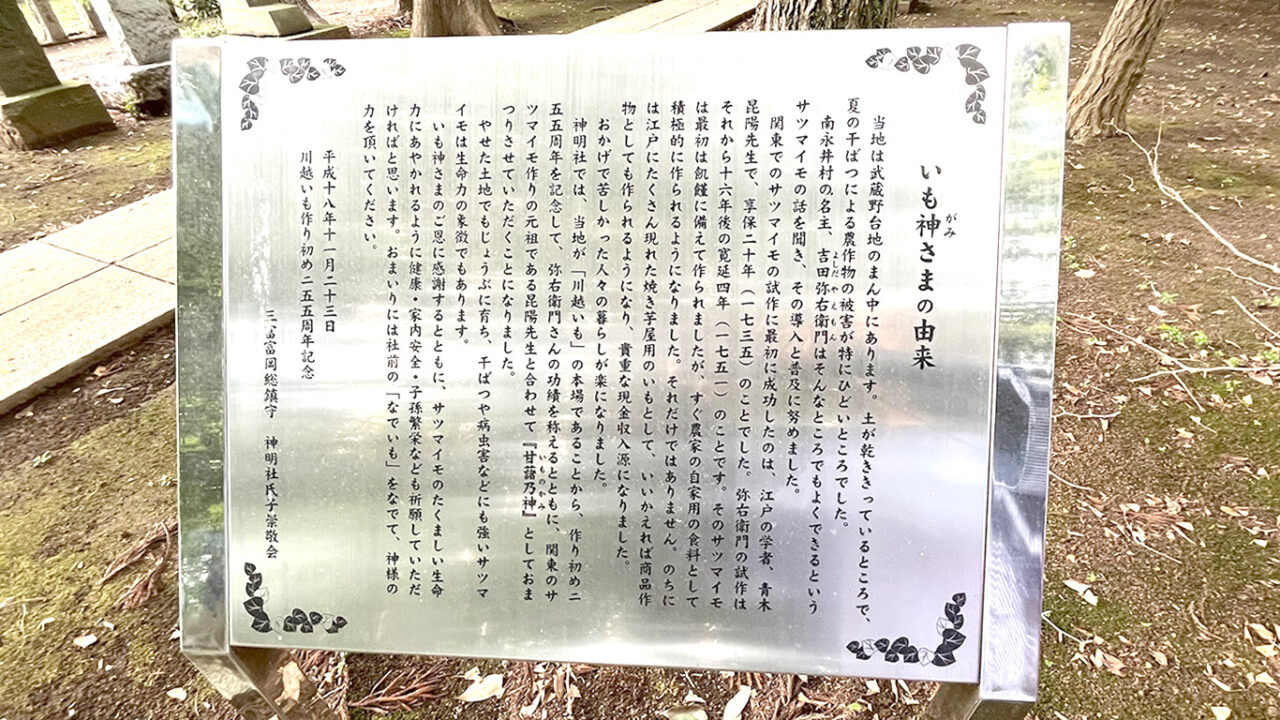 いも神さまの由来
がみ
当地は武蔵野台地のまん中にあります。土が乾ききっているところで、
夏の干ばつによる農作物の被害が特にひどいところでした。
南永井村の名主、吉田弥右衛門はそんなところでもよくできるという
よしだやえもん
サツマイモの話を聞き、その導入と普及に努めました。
関東でのサツマイモの試作に最初に成功したのは、江戸の学者、青木
昆陽先生で、享保二十年(一七三五)のことでした。弥右衛門の試作は
それから十六年後の寛延四年(一七五一)のことです。そのサツマイモ
は最初は飢饉に備えて作られましたが、すぐ農家の自家用の食料として
積極的に作られるようになりました。それだけではありません。のちに
は江戸にたくさん現れた焼き芋屋用のいもとして、いいかえれば商品作
物としても作られるようになり、貴重な現金収入源になりました。
おかげで苦しかった人々の暮らしが楽になりました。
神明社では、当地が「川越いも」の本場であることから、作り初め二
五五周年を記念して、弥右衛門さんの功績を称えるとともに、関東のサ
ツマイモ作りの元祖である昆陽先生と合わせて『甘藷乃神』としておま
いものかみ
つりさせていただくことになりました。
やせた土地でもじょうぶに育ち、干ばつや病虫害などにも強いサツマ
イモは生命力の象徴でもあります。
いも神さまのご恩に感謝するとともに、サツマイモのたくましい生命
力にあやかれるように健康・家内安全・子孫繁栄なども祈願していただ
ければと思います。おまいりには社前の「なでいも」をなでて、神様の
力を頂いてください。
平成十八年十一月二十三日
川越いも作り初め二五五周年記念
三富富岡総鎮守 神明社氏子崇敬会